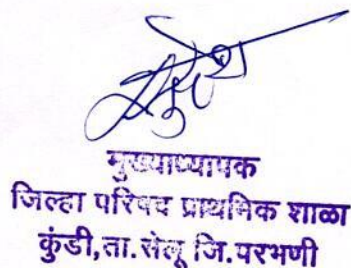 मुख्याध्यापक
जिल्हा परिषद प्राथमिक शाळा
कुंडी,ता.सेलू जि.परभणी